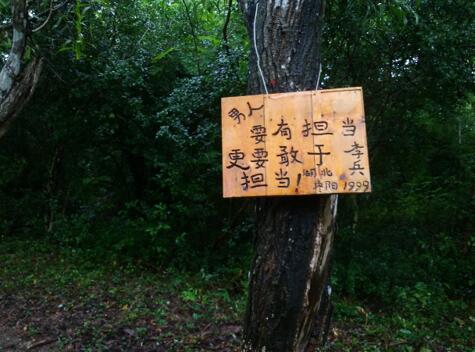 男人
要有担当
更要敢于
担当！
李兵
湖北
枣阳 1999